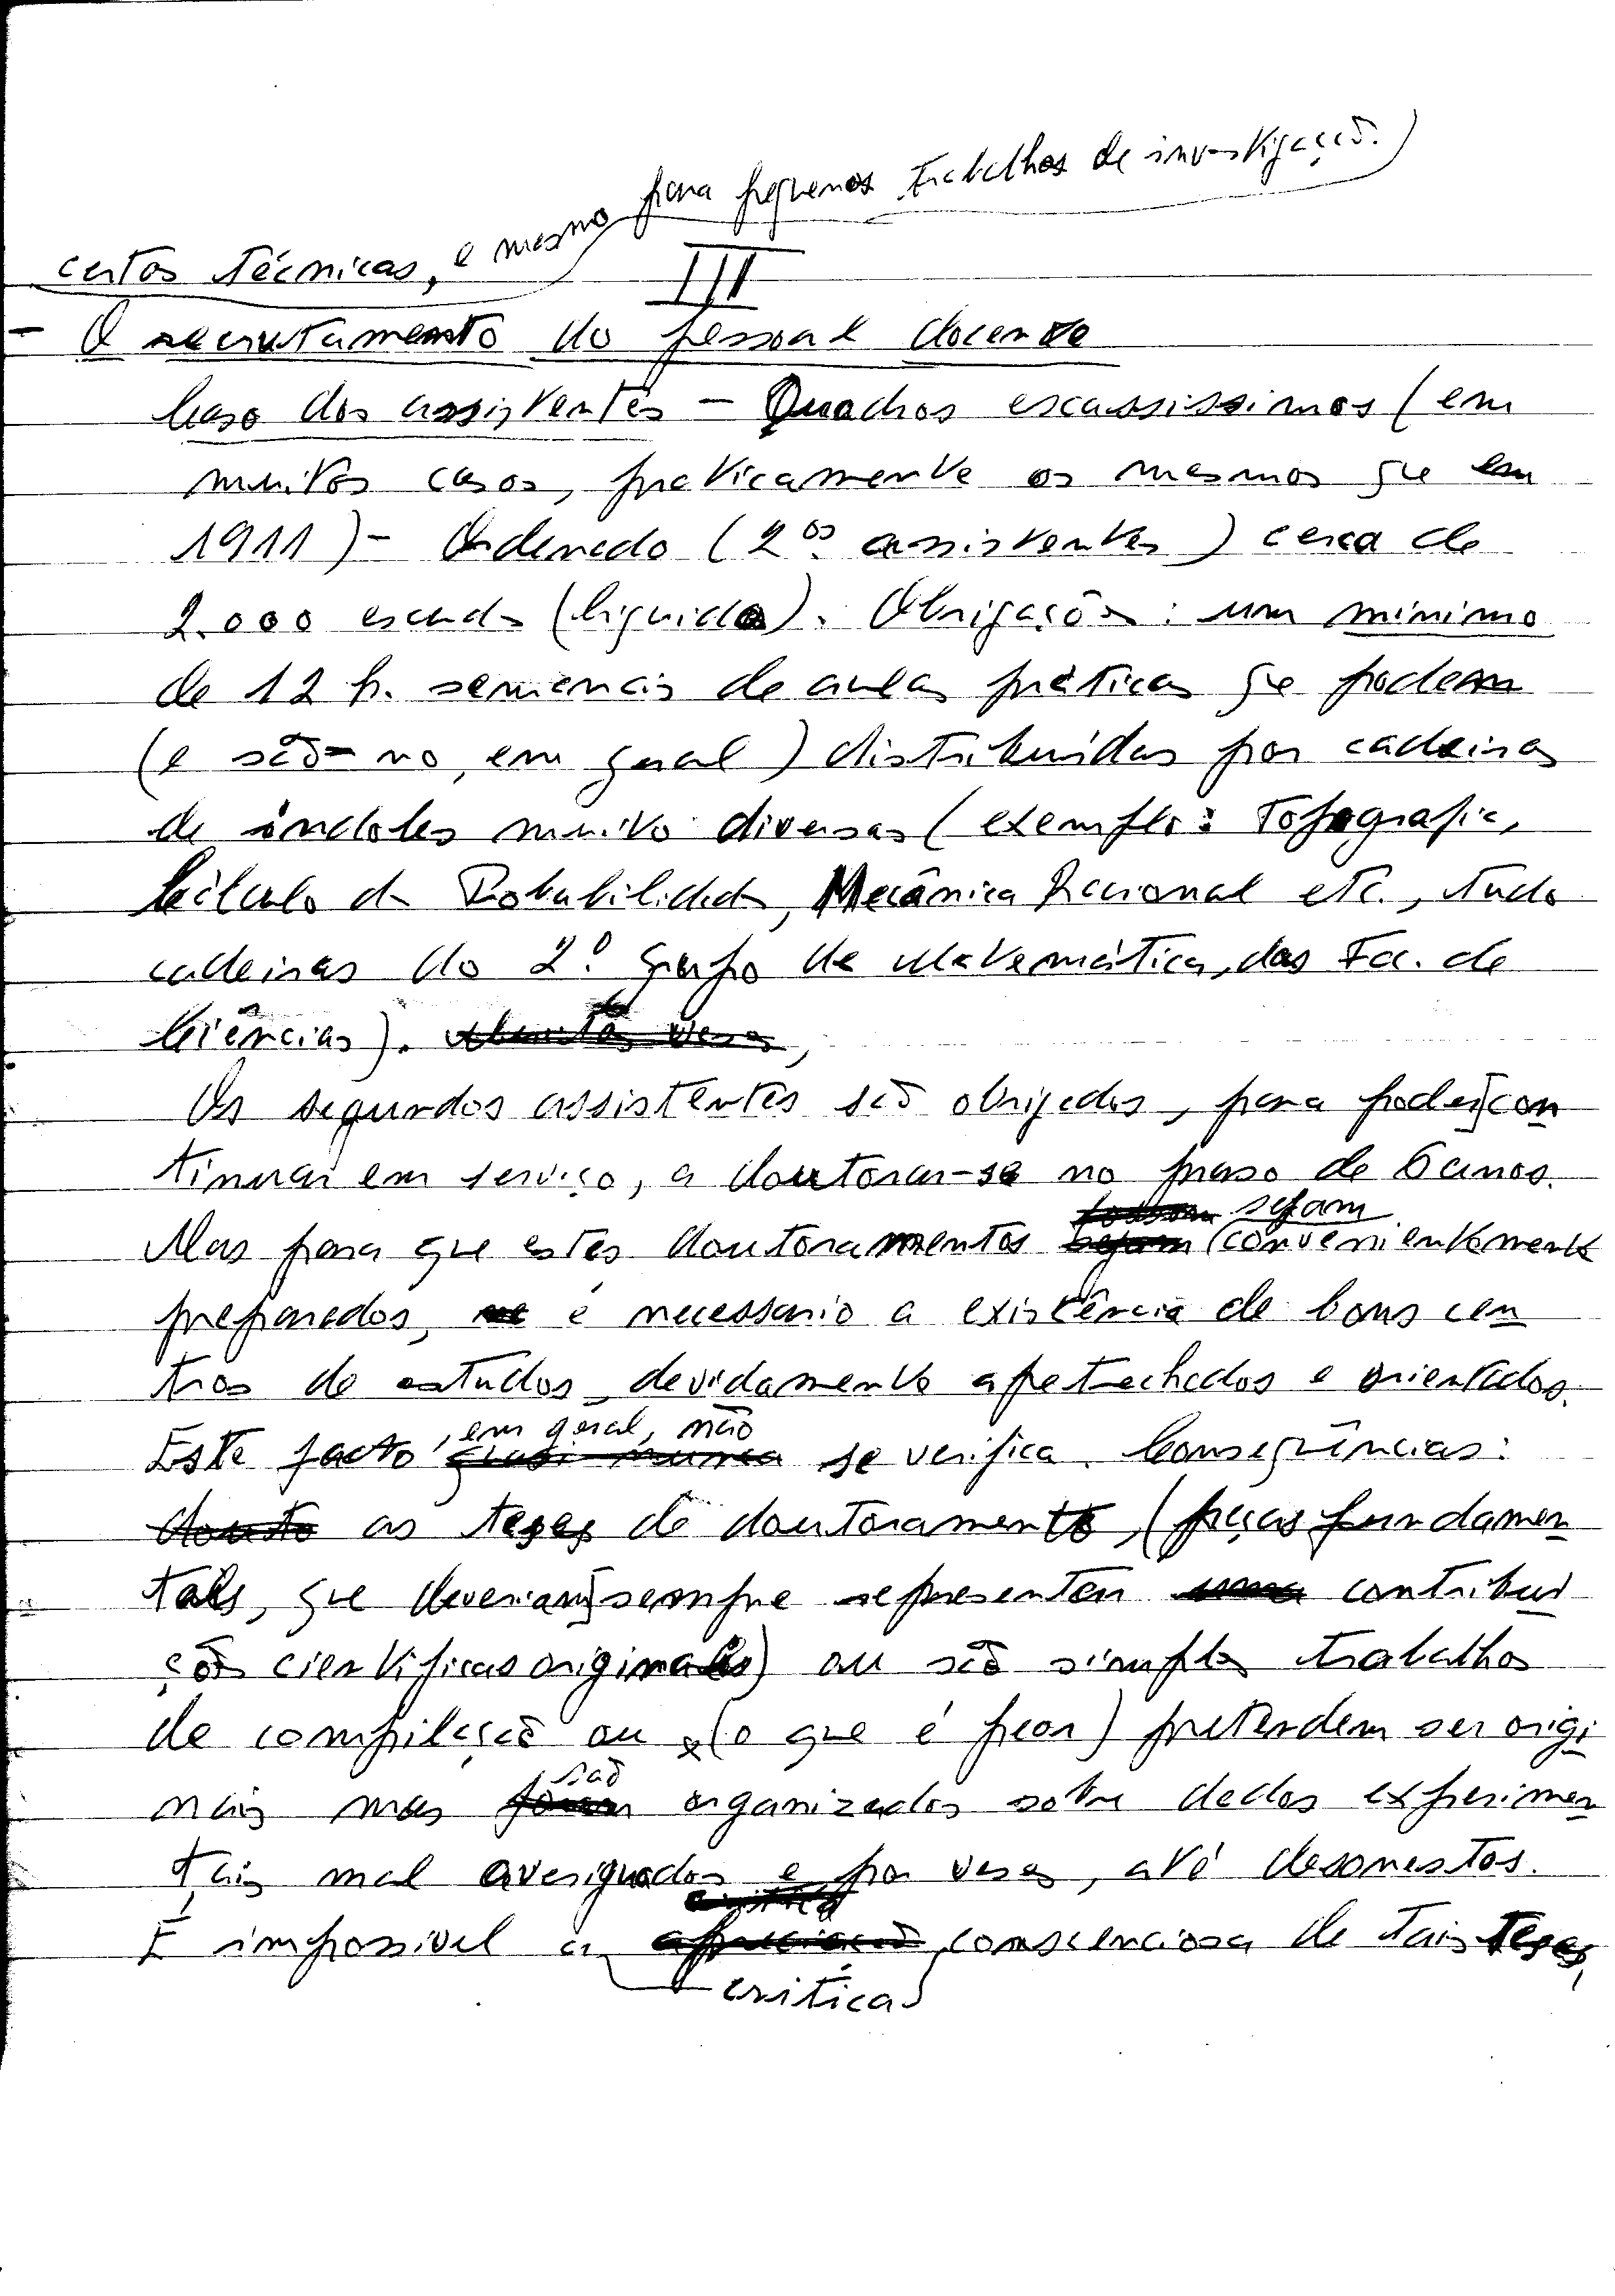 certos técnicos, e mesmo para pequenos trabalhos de investigação.)
III
- O recrutamento do pessoal docente
Caso dos assistentes - Quadros escassissimos (em
muitos casos, praticamente os mesmos que em
1911) - Ordenado (2.os assistentes) cerca de
2.000 escudos (liquidos). Obrigações: um mínimo
de 12 h. semanais de aulas práticas que podem
(e são-no, em geral) distribuídas por cadeiras
de índoles muito diversas (exemplo: Topografia,
Cálculo das Probabilidades, Mecânica Racional etc., tudo
cadeiras do 2.º grupo de Matemática, das Fac. de
Ciências).
Os segundos assistentes são obrigados, para poder con
tinuar em serviço, a doutorar-se no praso de 6 anos.
Mas para que estes doutoramentos sejam convenientemente
preparados, é necessario a existência de bons cen
tros de estudos devidamente apetrechados e orientados.
Este facto, em geral, não se verifica. Consequências:
as teses de doutoramento (peças fundamen
tais, que deveriam sempre representar contribui
ções cientificas originais) ou são simples trabalhos
de compilação ou (o que é peor) pretendem ser origi
nais mas são organizados sobre dados experimen
tais mal averiguados e por vezes, até desonestos.
É impossivel a crítica consciensiosa de tais teses,